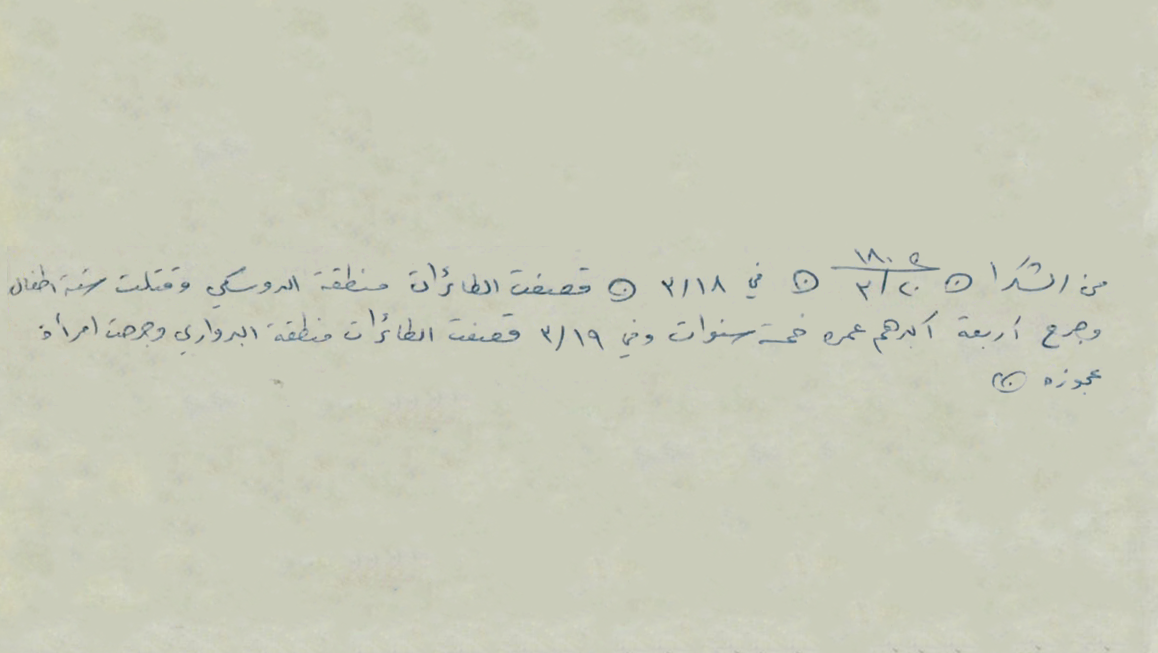 من الشكرا ⊙ ١٨٠٢ / ٣/٢٠ ⊙ في ٣/١٨ ⊙ قصفت الطائرات منطقة الدوسكي وقتلت ستة اطفال
وجرح أربعة أكبرهم عمره خمسة سنوات وفي ٣/١٩ قصفت الطائرات منطقة البرواري وجرحت امرأة
عجوزه ⊙